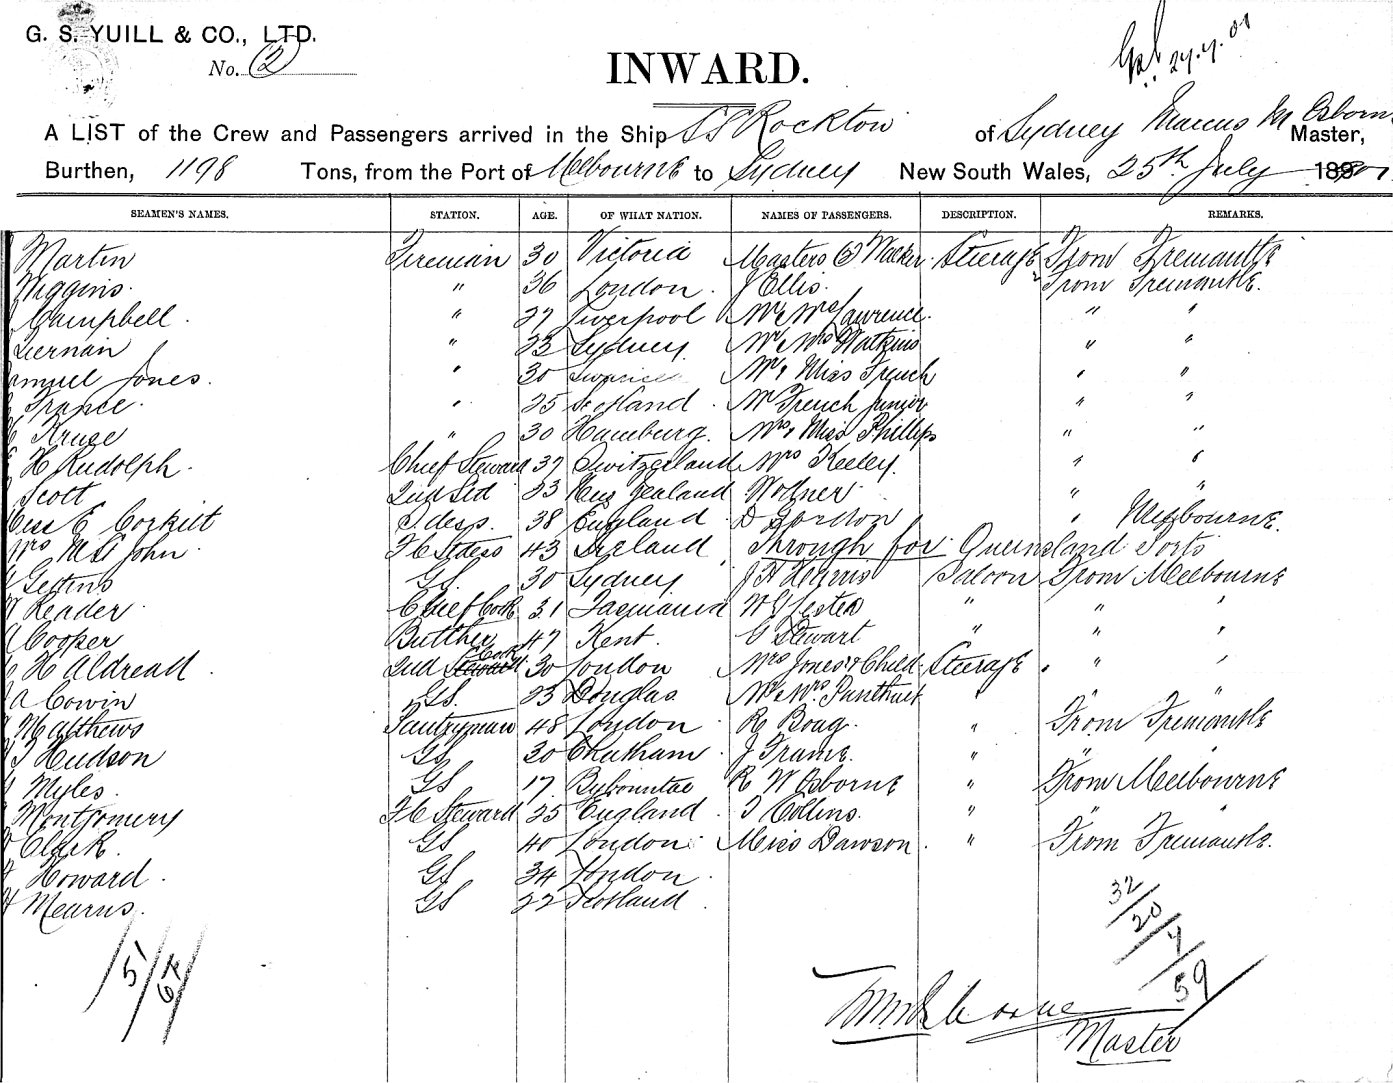 G. S. YUILL & CO., LTD.
No. 2
27.7.01
INWARD.
A LIST of the Crew and Passengers arrived in the Ship SS Rockton of Sydney Marcus M Osborne Master,
Burthen, 1198 Tons, from the Port of Melbourne to Sydney New South Wales, 25th July 189
SEAMEN'S NAMES. STATION. AGE. OF WHAT NATION. NAMES OF PASSENGERS. DESCRIPTION. REMARKS.
Martin Fireman 30 Victoria Masters (2) Walker Steerage From Fremantle
Wiggins. " 36 London. J Ellis. From Fremantle.
Campbell. " 27 Liverpool Mr & Mrs Lawrence. " "
Tiernan " 23 Sydney Mr & Mrs Watkins " "
Samuel Jones. " 30 Swansea Mr & Miss French " "
France. " 25 Scotland. Mr French Junior " "
Kruse " 30 Hamburg. Mrs & Miss Phillips " "
H Rudolph. Chief Steward 37 Switzerland Mrs Keeley. " "
Scott 2nd Std 23 New Zealand Wollner " "
Miss E Corkill S'dess. 38 England D Gordon " Melbourne.
Mrs M St John F C S'dess 43 Ireland Through for Queensland Ports
Gettins GS 30 Sydney J H Harris Saloon From Melbourne
W Reader Chief Cook 31 Tasmania W G Lester " " "
A Cooper Butcher 47 Kent. C Stewart " " "
H Aldread. 2nd Cook 30 London Mrs Jones & Child Steerage " "
A Cowin GS. 23 Douglas. Mr & Mrs " " "
Matthews Pantryman 48 London R Boag. " From Fremantle
T Hudson GS 20 Chatham J Frame. " " "
Myles. GS 17 R W Osborne " From Melbourne
Montgomery F C Steward 25 England T Collins. " " "
Clark. GS 40 London Miss Dawson. " From Fremantle.
Howard. GS 34 London.
Mearns. GS 22 Scotland.
32/20/7/59
51/64
Master